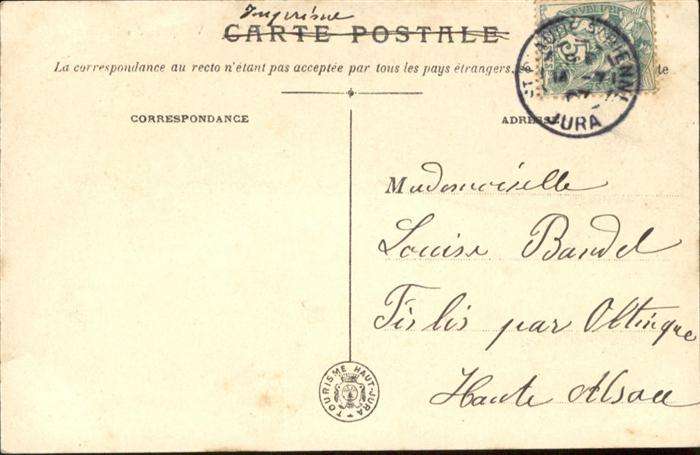 Imprimé
CARTE POSTALE
La correspondance au recto n'étant pas acceptée par tous les pays étrangers, se
te
CORRESPONDANCE
ADRESSE
JURA
Mademoiselle
Louise Bandel
Fislis par Oltingue
Haute Alsace
TOURISME HAUT-JURA